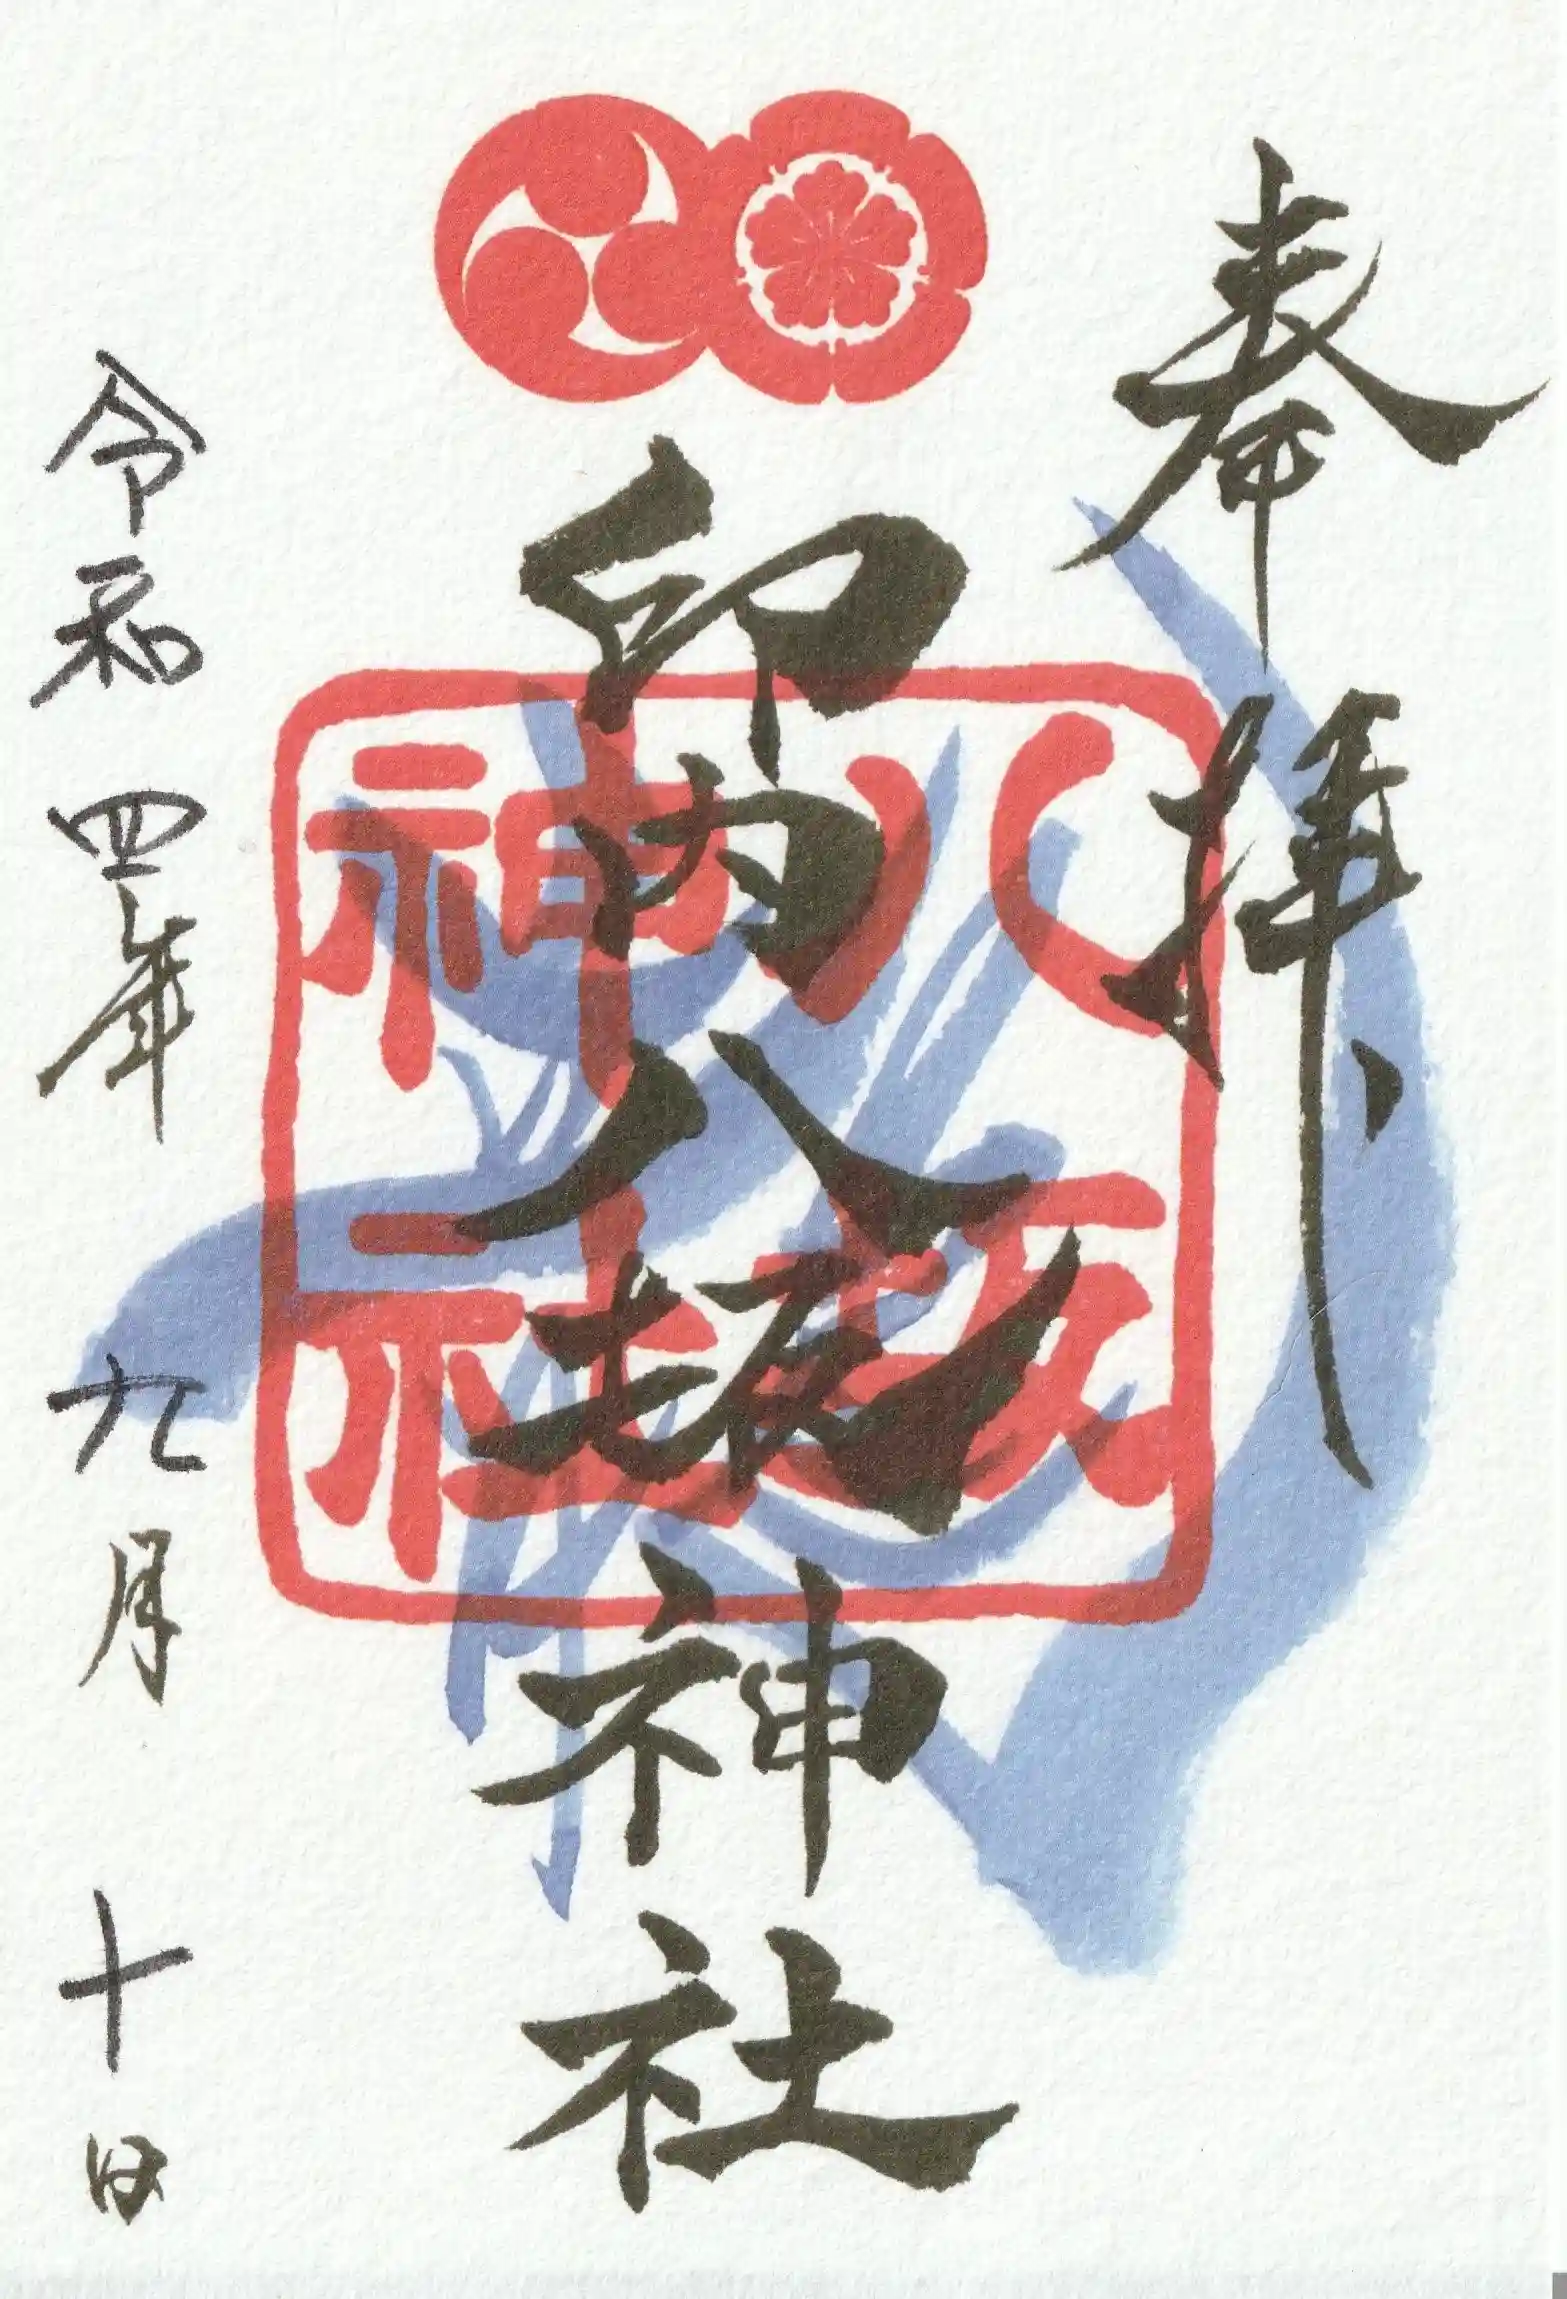 奉拝
印内八坂神社
八坂神社
令和四年九月十日